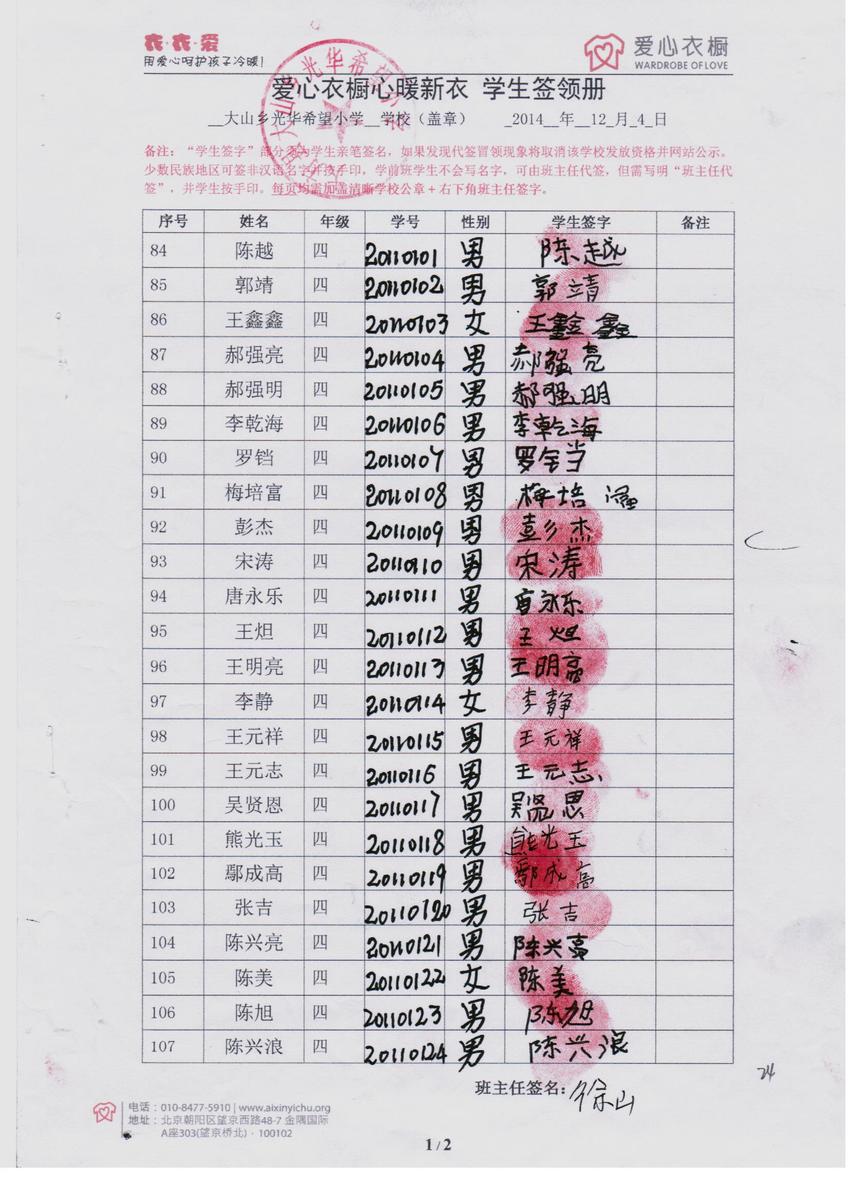 衣·衣·爱
用爱心呵护孩子冷暖!
爱心衣橱
WARDROBE OF LOVE
爱心衣橱心暖新衣 学生签领册
__大山乡光华希望小学__学校（盖章） _2014__年__12_月_4_日
备注：“学生签字”部分须为学生亲笔签名，如果发现代签冒领现象将取消该学校发放资格并网站公示。
少数民族地区可签非汉语名字并按手印，学前班学生不会写名字，可由班主任代签，但需写明“班主任代
签”，并学生按手印。每页均需加盖清晰学校公章+右下角班主任签字。
序号 姓名 年级 学号 性别 学生签字 备注
84 陈越 四 20110101 男 陈越
85 郭靖 四 20110102 男 郭靖
86 王鑫鑫 四 20110103 女 王鑫鑫
87 郝强亮 四 20110104 男 郝强亮
88 郝强明 四 20110105 男 郝强明
89 李乾海 四 20110106 男 李乾海
90 罗铛 四 20110107 男 罗铛
91 梅培富 四 20110108 男 梅培
92 彭杰 四 20110109 男 彭杰
93 宋涛 四 20110110 男 宋涛
94 唐永乐 四 20110111 男 唐永乐
95 王炟 四 20110112 男 王炟
96 王明亮 四 20110113 男 王明亮
97 李静 四 20110114 女 李静
98 王元祥 四 20110115 男 王元祥
99 王元志 四 20110116 男 王元志
100 吴贤恩 四 20110117 男 吴贤恩
101 熊光玉 四 20110118 男 熊光玉
102 鄢成高 四 20110119 男 鄢成高
103 张吉 四 20110120 男 张吉
104 陈兴亮 四 20110121 男 陈兴亮
105 陈美 四 20110122 女 陈美
106 陈旭 四 20110123 男 陈旭
107 陈兴浪 四 20110124 男 陈兴浪
24
班主任签名: 徐山
电话：010-8477-5910 | www.aixinyichu.org
地址：北京朝阳区望京西路48-7 金隅国际
A座303(望京桥北)·100102
1 / 2